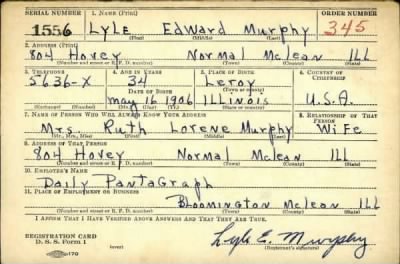 SERIAL NUMBER 1. NAME (Print) ORDER NUMBER
1556 LYLE Edward Murphy 345
(First) (Middle) (Last)
2. ADDRESS (Print)
804 Hovey Normal McLean ILL
(Number and street or R. F. D. number) (Town) (County) (State)
3. TELEPHONE 4. AGE IN YEARS 5. PLACE OF BIRTH 6. COUNTRY OF CITIZENSHIP
5636-X 34 Leroy
DATE OF BIRTH (Town or county)
May 16 1906 ILLINOIS U.S.A.
(Exchange) (Number) (Mo.) (Day) (Yr.) (State or country)
7. NAME OF PERSON WHO WILL ALWAYS KNOW YOUR ADDRESS 8. RELATIONSHIP OF THAT PERSON
Mrs. Ruth Lorene Murphy Wife
(Mr., Mrs., Miss) (First) (Middle) (Last)
9. ADDRESS OF THAT PERSON
804 Hovey Normal McLean ILL
(Number and street or R. F. D. number) (Town) (County) (State)
10. EMPLOYER'S NAME
Daily Pantagraph
11. PLACE OF EMPLOYMENT OR BUSINESS
Bloomington McLean ILL
(Number and street or R. F. D. number) (Town) (County) (State)
I AFFIRM THAT I HAVE VERIFIED ABOVE ANSWERS AND THAT THEY ARE TRUE.
REGISTRATION CARD
D. S. S. Form 1 (over) Lyle E. Murphy
(Registrant's signature)